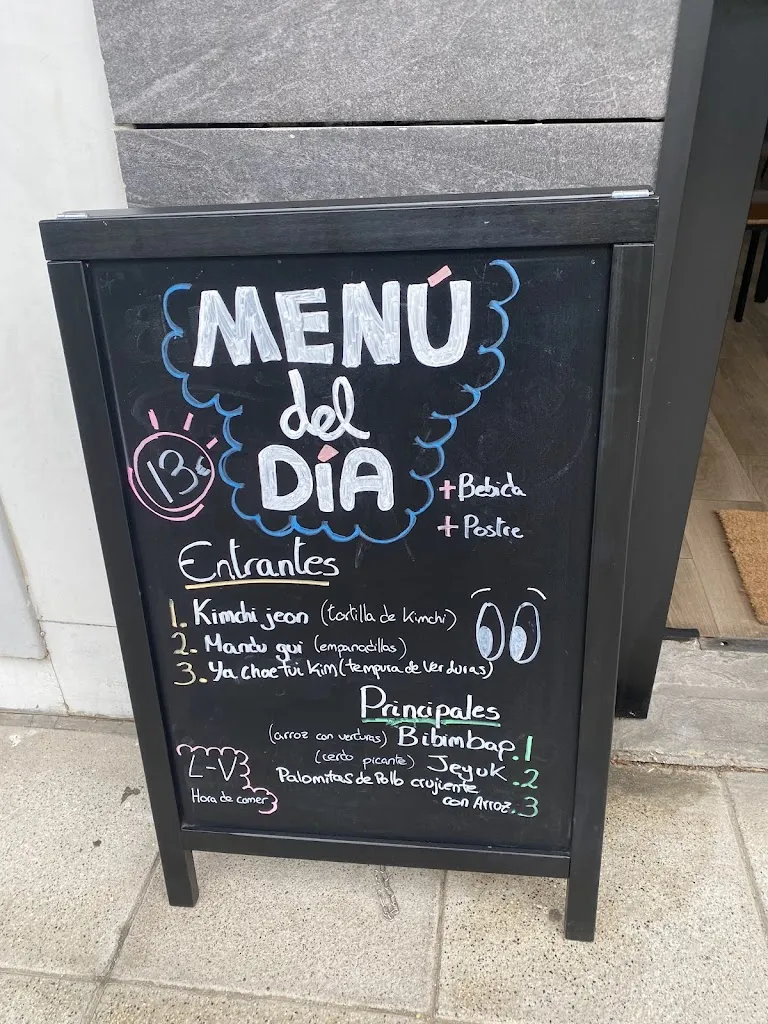 MENÚ
del
DÍA
13€
+ Bebida
+ Postre
Entrantes
1. Kimchi jeon (tortilla de Kimchi)
2. Mandu gui (empanadillas)
3. Ya chae tui Kim (tempura de verduras)
Principales
(arroz con verduras) Bibimbap .1
(cerdo picante) Jeyuk .2
Palomitas de Pollo crujiente
con Arroz .3
L-V
Hora de comer